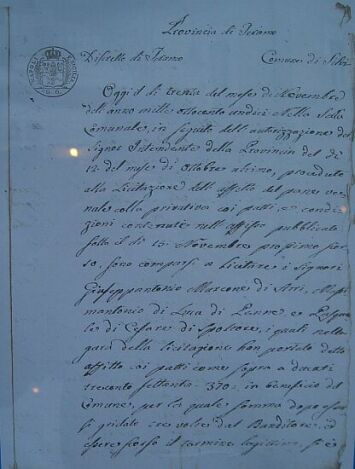 Provincia di Teramo
Distretto di Teramo Comune di Silvi
Oggi il dì trenta del mese di Novembre
dell'anno mille ottocento undici nella Sala
Comunale, in seguito dell'autorizzazione del
Signor Intendente della Provincia del dì
12. del mese di Ottobre ultimo, proceduto
alla Licitazione dell'affitto del pane ve-
nale colla privativa coi patti, e condi-
zioni contenute nell'affisso pubblicato
fatto il dì 15 Novembre prossimo scor-
so, sono comparsi a licitare i Signori
Giuseppantonio Marcone di Atri, Massi-
mantonio di Luca di Penne, e Pasqua-
le di Cesare di Spoltore, i quali nella
gara della licitazione han portato detto
affitto coi patti come sopra a ducati
trecento settanta 370: in beneficio del
Comune, per la quale somma dopo esser-
si gridato tre volte dal Banditore, ed
essere scorso il termine legittimo, si è